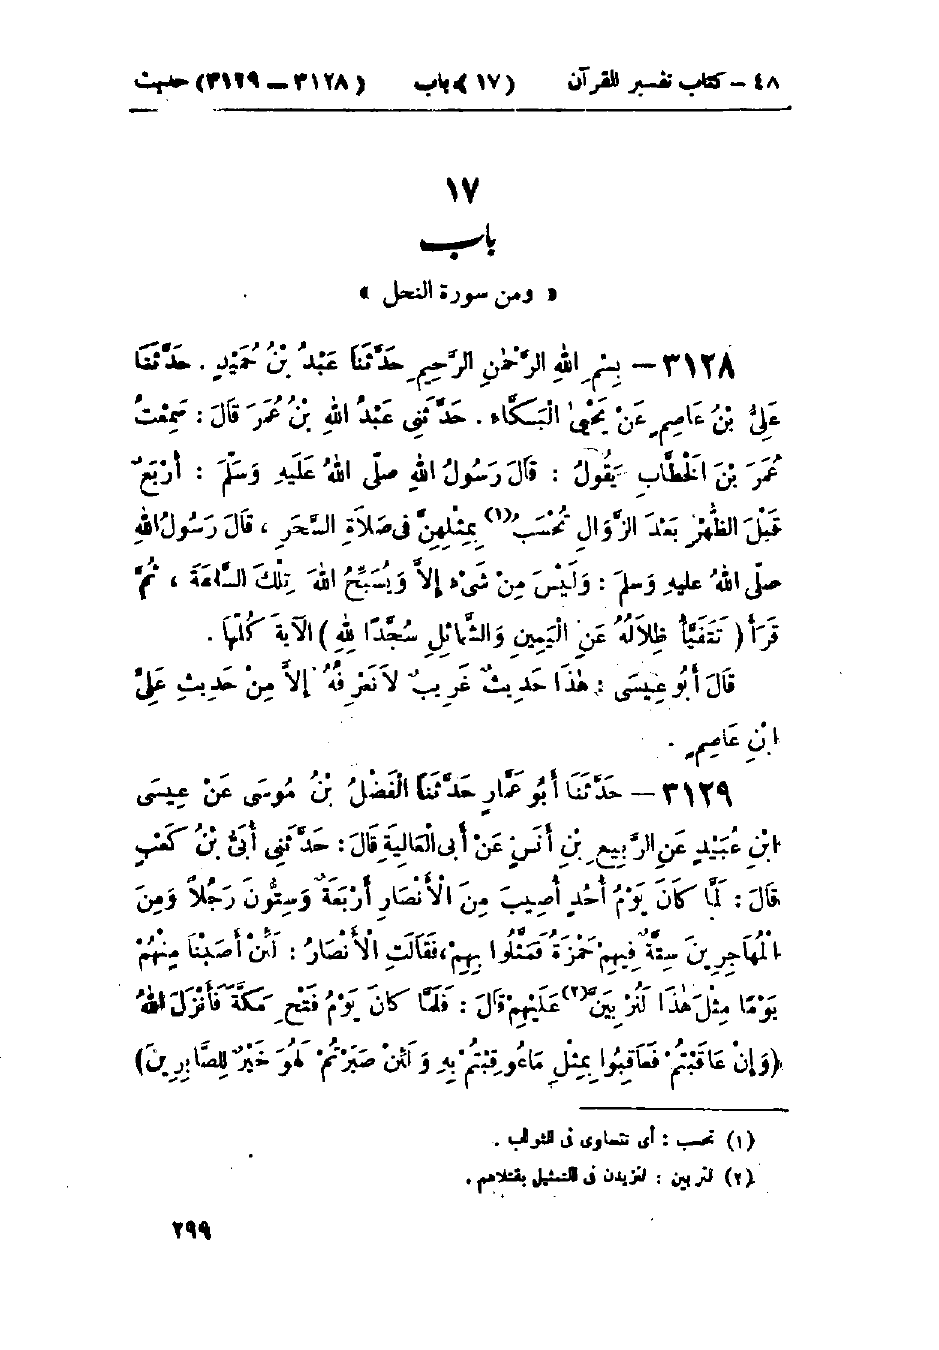 ٤٨ – كتاب تفسير القرآن (١٧) باب (٣١٢٨ – ٣١٢٩) حديث
١٧
باب
« ومن سورة النحل »
٣١٢٨ – بِسْمِ اللهِ الرَّحْمٰنِ الرَّحِيمِ حَدَّثَنَا عَبْدُ بْنُ حُمَيْدٍ . حَدَّثَنَا
عَلِىُّ بْنُ عَاصِمٍ عَنْ يَحْيَى الْبَكَّاءِ . حَدَّثَنِى عَبْدُ اللهِ بْنُ عُمَرَ قَالَ : سَمِعْتُ
عُمَرَ بْنَ الْخَطَّابِ يَقُولُ : قَالَ رَسُولُ اللهِ صلّى اللهُ عَلَيهِ وَسَلّمَ : أَرْبَعٌ
قَبْلَ الظُّهْرِ بَعْدَ الزَّوَالِ تُحْسَبُ (١) بِمِثْلِهِنَّ فِى صَلَاةِ السَّحَرِ ، قَالَ رَسُولُ اللهِ
صلّى اللهُ عليهِ وَسَلمَ : وَلَيْسَ مِنْ شَىْءٍ إِلاَّ وَيُسَبِّحُ اللهَ تِلْكَ السَّاعَةَ ، ثُمَّ
قَرَأَ ( تَتَفَيَّأُ ظِلاَلُهُ عَنِ الْيَمِينِ وَالشَّمَائِلِ سُجَّدًا لِلهِ ) الْآيَةَ كُلَّهَا .
قَالَ أَبُو عِيسَى : هٰذَا حَدِيثٌ غَرِيبٌ لاَ نَعْرِفُهُ إِلاَّ مِنْ حَدِيثِ عَلِىِّ
ابْنِ عَاصِمٍ .
٣١٢٩ – حَدَّثَنَا أَبُو عَمَّارٍ حَدَّثَنَا الْفَضْلُ بْنُ مُوسَى عَنْ عِيسَى
ابْنِ عُبَيْدٍ عَنِ الرَّبِيعِ بْنِ أَنَسٍ عَنْ أَبِى الْعَالِيَةِ قَالَ : حَدَّثَنِى أُبَىُّ بْنُ كَعْبٍ
قَالَ : لَمَّا كَانَ يَوْمُ أُحُدٍ أُصِيبَ مِنَ الْأَنْصَارِ أَرْبَعَةٌ وَسِتُّونَ رَجُلاً وَمِنَ
الْمُهَاجِرِينَ سِتَّةٌ فِيهِمْ حَمْزَةُ فَمَثَّلُوا بِهِمْ، فَقَالَتِ الْأَنْصَارُ : لَئِنْ أَصَبْنَا مِنْهُمْ
يَوْمًا مِثْلَ هٰذَا لَنُرْبِيَنَّ (٢) عَلَيْهِمْ قَالَ : فَلَمَّا كَانَ يَوْمُ فَتْحِ مَكَّةَ فَأَنْزَلَ اللهُ
(وَإِنْ عَاقَبْتُمْ فَعَاقِبُوا بِمِثْلِ مَا عُوقِبْتُمْ بِهِ وَلَئِنْ صَبَرْتُمْ لَهُوَ خَيْرٌ لِلصَّابِرِينَ)
(١) تحسب : أى تتساوى فى الثواب .
(٢) لنربين : لنزيدن فى التمثيل بقتلاهم .
٢٩٩